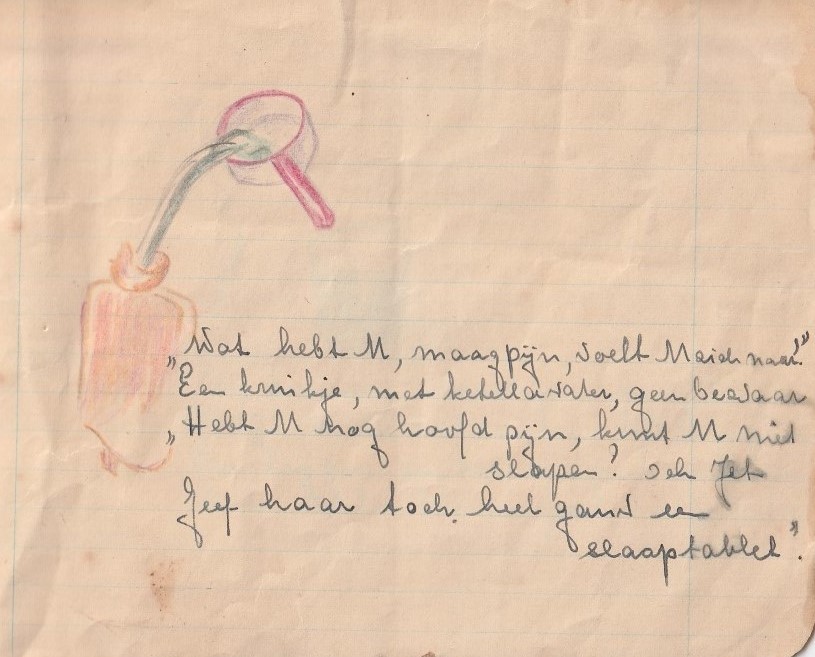 „Wat hebt U, maagpijn, voelt U zich naar?"
Een kruikje, met ketelwater, geen bezwaar
„Hebt U nog hoofdpijn, kunt U niet
slapen? och Jet
Geef haar toch heel gauw een
slaaptablet".